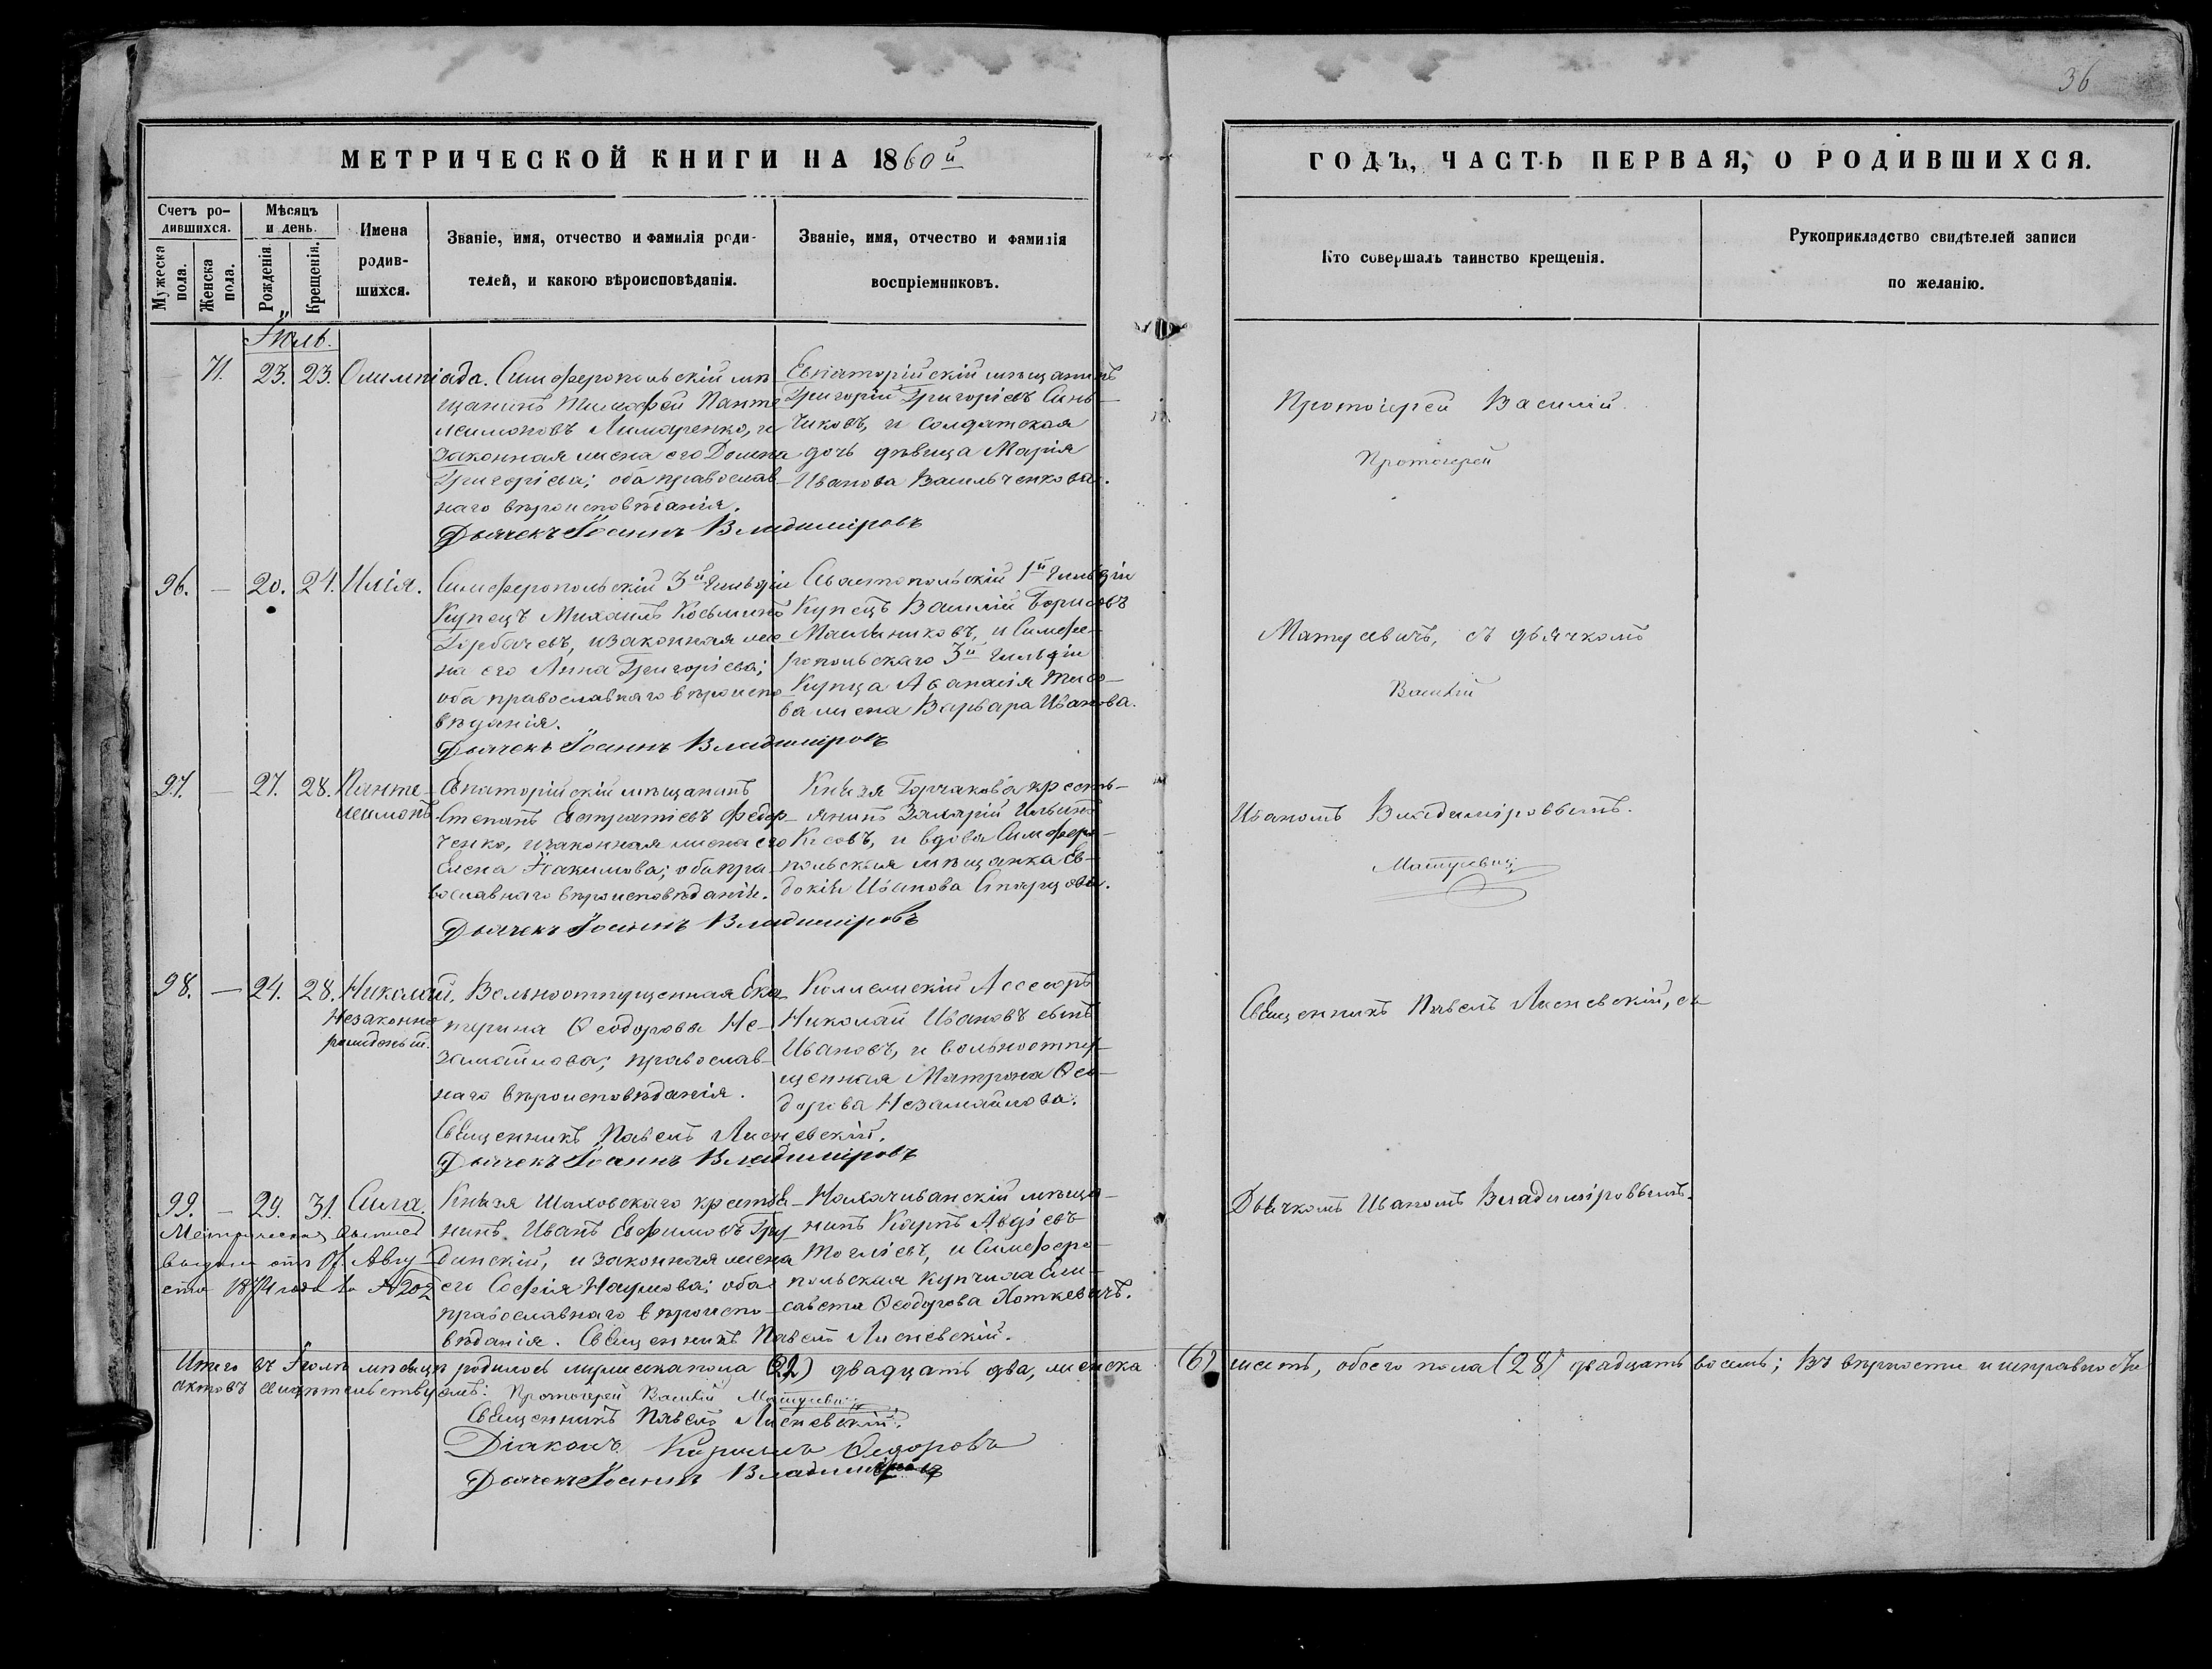 36
МЕТРИЧЕСКОЙ КНИГИ НА 1860й
ГОДЪ, ЧАСТЬ ПЕРВАЯ, О РОДИВШИХСЯ.
Счетъ родившихся.
Мужеска пола.
Женска пола.
Мѣсяцъ и день.
Рожденія
Крещенія.
Имена родившихся.
Званіе, имя, отчество и фамилія родителей, и какого вѣроисповѣданія.
Званіе, имя, отчество и фамилія воспріемниковъ.
Кто совершалъ таинство крещенія.
Рукоприкладство свидѣтелей записи по желанію.
Іюль.
71. 23. 23. Олимпіада.
Симферопольскій мѣ-
щанинъ Тимофей Панте-
леимоновъ Лимаренко, и
законная жена его Домна
Григоріева; оба православ-
наго вѣроисповѣданія.
Дьячекъ Іоаннъ Владиміровъ
Евпаторійскій мѣщанинъ
Григорій Григорьевъ Синь-
чиковъ, и солдатская
дочь дѣвица Марія
Иванова Васильченкова.
Протоіерей Василій
Протоіерей
96. — 20. 24. Илія.
Симферопольскій 3й гильдіи
Купецъ Михаилъ Косьминъ
Горбачевъ, и законная же-
на его Анна Григоріева;
оба православнаго вѣроиспо-
вѣданія.
Дьячекъ Іоаннъ Владиміровъ
Севастопольскій 1й гильдіи
Купецъ Василій Борисовъ
Масленниковъ, и Симфе-
ропольскаго 3й гильдіи
Купца Аѳанасія
жена Варвара Иванова.
Матусевичъ, съ дьячкомъ
Василій
97. — 27. 28. Панте-
леимонъ
Евпаторійскій мѣщанинъ
Степанъ Евстратіевъ Федор-
ченко, и законная жена его
Елена Іоакимова; оба пра-
вославнаго вѣроисповѣданія.
Дьячекъ Іоаннъ Владиміровъ
Князя Горчакова кресть-
янинъ Захарій Ильинъ
и вдова Симферо-
польская мѣщанка Ев-
докія Иванова
Иваномъ Владиміровымъ.
Матусевичъ
98. — 24. 28. Николай.
Незаконно-
рожденный.
Вольноотпущенная Ека-
терина Ѳеодорова Не-
замайлова; православ-
наго вѣроисповѣданія.
Священникъ Павелъ Лисневскій.
Дьячекъ Іоаннъ Владиміровъ
Коллежскій Ассесоръ
Николай Ивановъ сынъ
Ивановъ, и вольноотпу-
щенная Матрона Ѳео-
дорова Незамайлова.
Священникъ Павелъ Лисневскій, съ
99. — 29. 31. Сила.
Метрическая
выдана отъ Авгу-
ста года за № 202
Князя Шаховскаго крестья-
нинъ Иванъ Евфимовъ Гру-
динскій, и законная жена
его Софія Наумова; оба
православнаго вѣроиспо-
вѣданія. Священникъ Павелъ Лисневскій.
Нахичиванскій мѣща-
нинъ Карпъ Авдіевъ
и Симферо-
польская купчиха Ели-
савета Ѳеодорова Хоткевичъ.
Дьячкомъ Иваномъ Владиміровымъ.
Итого въ Іюлѣ мѣсяцѣ родилось мужеска пола (22) двадцать два, женска (6) шесть, обоего пола (28) двадцать восемь; въ вѣрности и исправности
актовъ свидѣтельствуемъ: Протоіерей Василій Матусевичъ
Священникъ Павелъ Лисневскій.
Діаконъ Кириллъ Ѳедоровъ
Дьячекъ Іоаннъ Владиміровъ